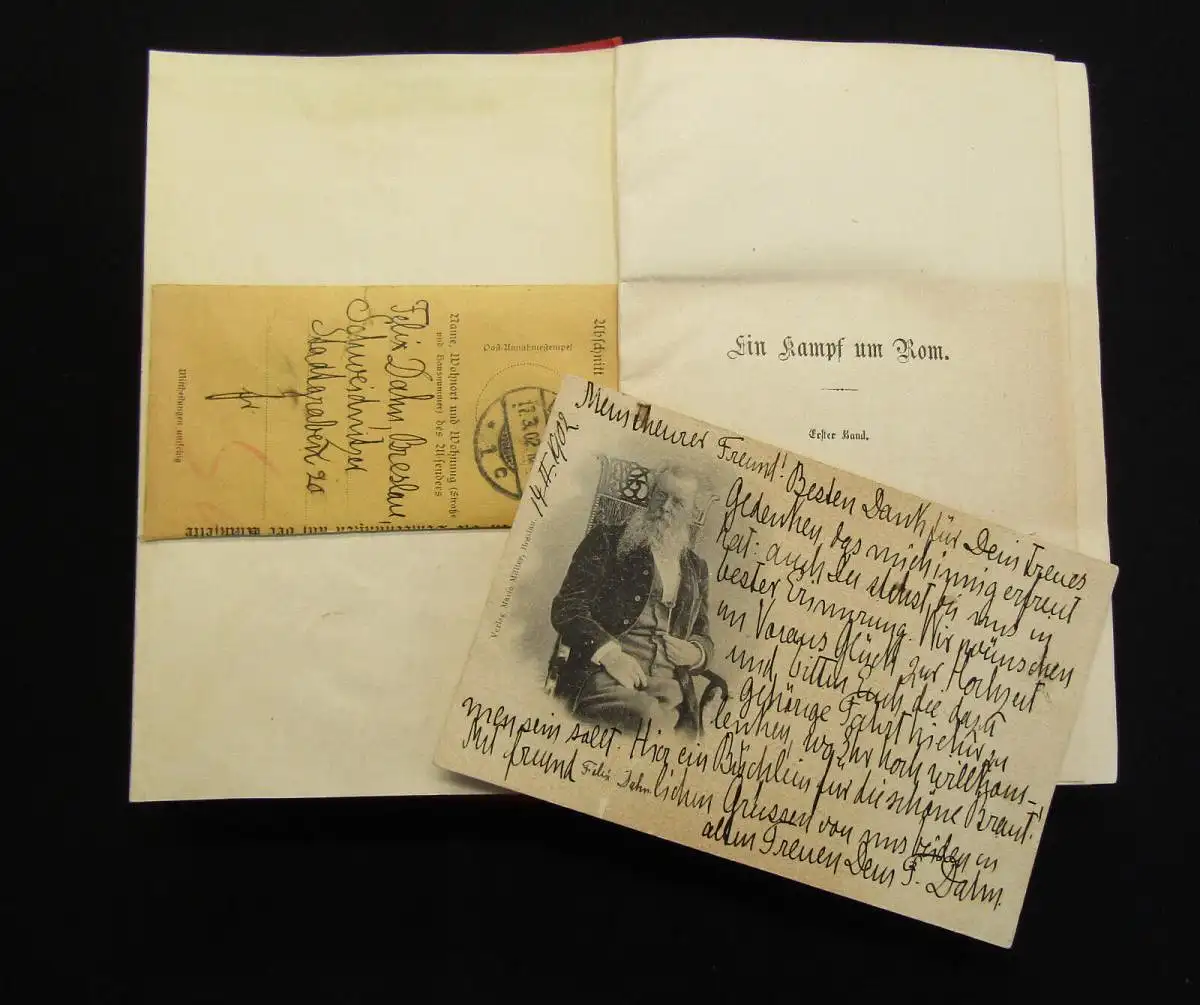 Ein Kampf um Rom.
Erster Band.
Abschnitt
Post-Annahmestempel
17.3.02
1 c
Name, Wohnort und Wohnung (Straße
und Hausnummer) des Absenders
Felix Dahn, Breslau,
Schweidnitzer
Stadtgraben 20
fr
Mittheilungen umseitig
Verlag Mario Müller, Breslau.
14 II. 1902
Freund! Besten Dank für Dein treues
Gedenken, das mich innig erfreut
hat: auch du stehst bei uns in
bester Erinnerung. Wir wünschen
im Voraus Glück zur Hochzeit
und bitten Euch die dazu
gehörige Fahrt hieher zu
lenken, wo Ihr hoch willkom-
men sein sollt. Hier ein Büchlein für die schöne Braut!
Mit freundlichen Grüssen von uns beiden in
Felix Dahn
alten Treuen Dein F. Dahn.